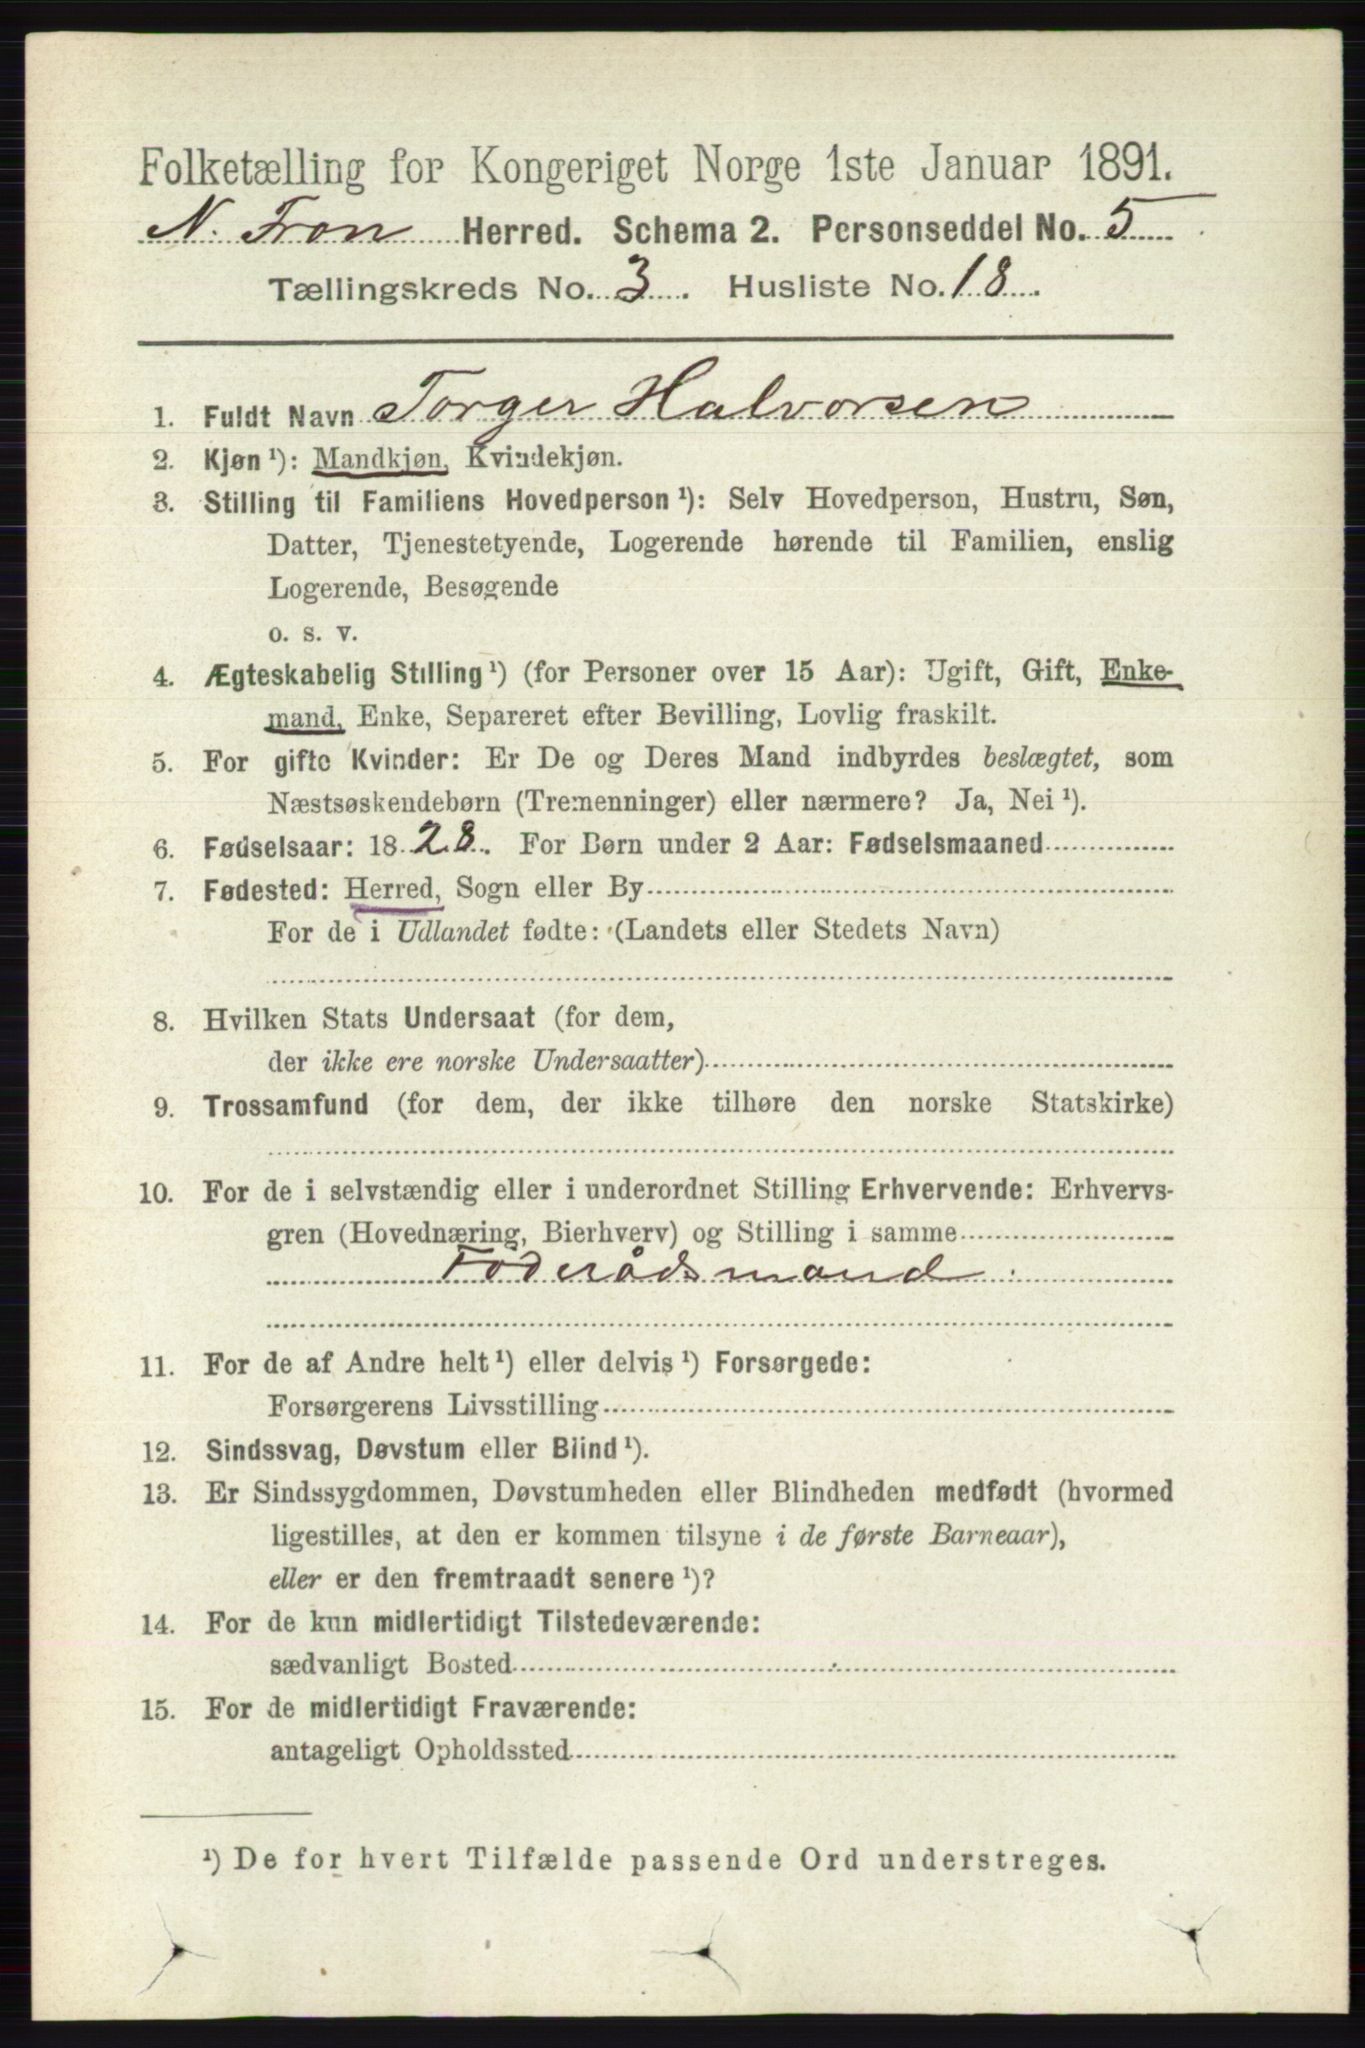 Folketælling for Kongeriget Norge 1ste Januar 1891.
N. Fron Herred. Schema 2. Personseddel No. 5
Tællingskreds No. 3. Husliste No. 18.
1. Fuldt Navn Torger Halvorsen
2. Kjøn ¹): Mandkjøn, Kvindekjøn.
3. Stilling til Familiens Hovedperson ¹): Selv Hovedperson, Hustru, Søn,
Datter, Tjenestetyende, Logerende hørende til Familien, enslig
Logerende, Besøgende
o. s. v.
4. Ægteskabelig Stilling ¹) (for Personer over 15 Aar): Ugift, Gift, Enke-
mand, Enke, Separeret efter Bevilling, Lovlig fraskilt.
5. For gifte Kvinder: Er De og Deres Mand indbyrdes beslægtet, som
Næstsøskendebørn (Tremenninger) eller nærmere? Ja, Nei ¹).
6. Fødselsaar: 1828. For Børn under 2 Aar: Fødselsmaaned
7. Fødested: Herred, Sogn eller By
For de i Udlandet fødte: (Landets eller Stedets Navn)
8. Hvilken Stats Undersaat (for dem,
der ikke ere norske Undersaatter)
9. Trossamfund (for dem, der ikke tilhøre den norske Statskirke)
10. For de i selvstændig eller i underordnet Stilling Erhvervende: Erhvervs-
gren (Hovednæring, Bierhverv) og Stilling i samme
Foderådsmand
11. For de af Andre helt ¹) eller delvis ¹) Forsørgede:
Forsørgerens Livsstilling
12. Sindssvag, Døvstum eller Blind ¹).
13. Er Sindssygdommen, Døvstumheden eller Blindheden medfødt (hvormed
ligestilles, at den er kommen tilsyne i de første Barneaar),
eller er den fremtraadt senere ¹)?
14. For de kun midlertidigt Tilstedeværende:
sædvanligt Bosted
15. For de midlertidigt Fraværende:
antageligt Opholdssted
¹) De for hvert Tilfælde passende Ord understreges.